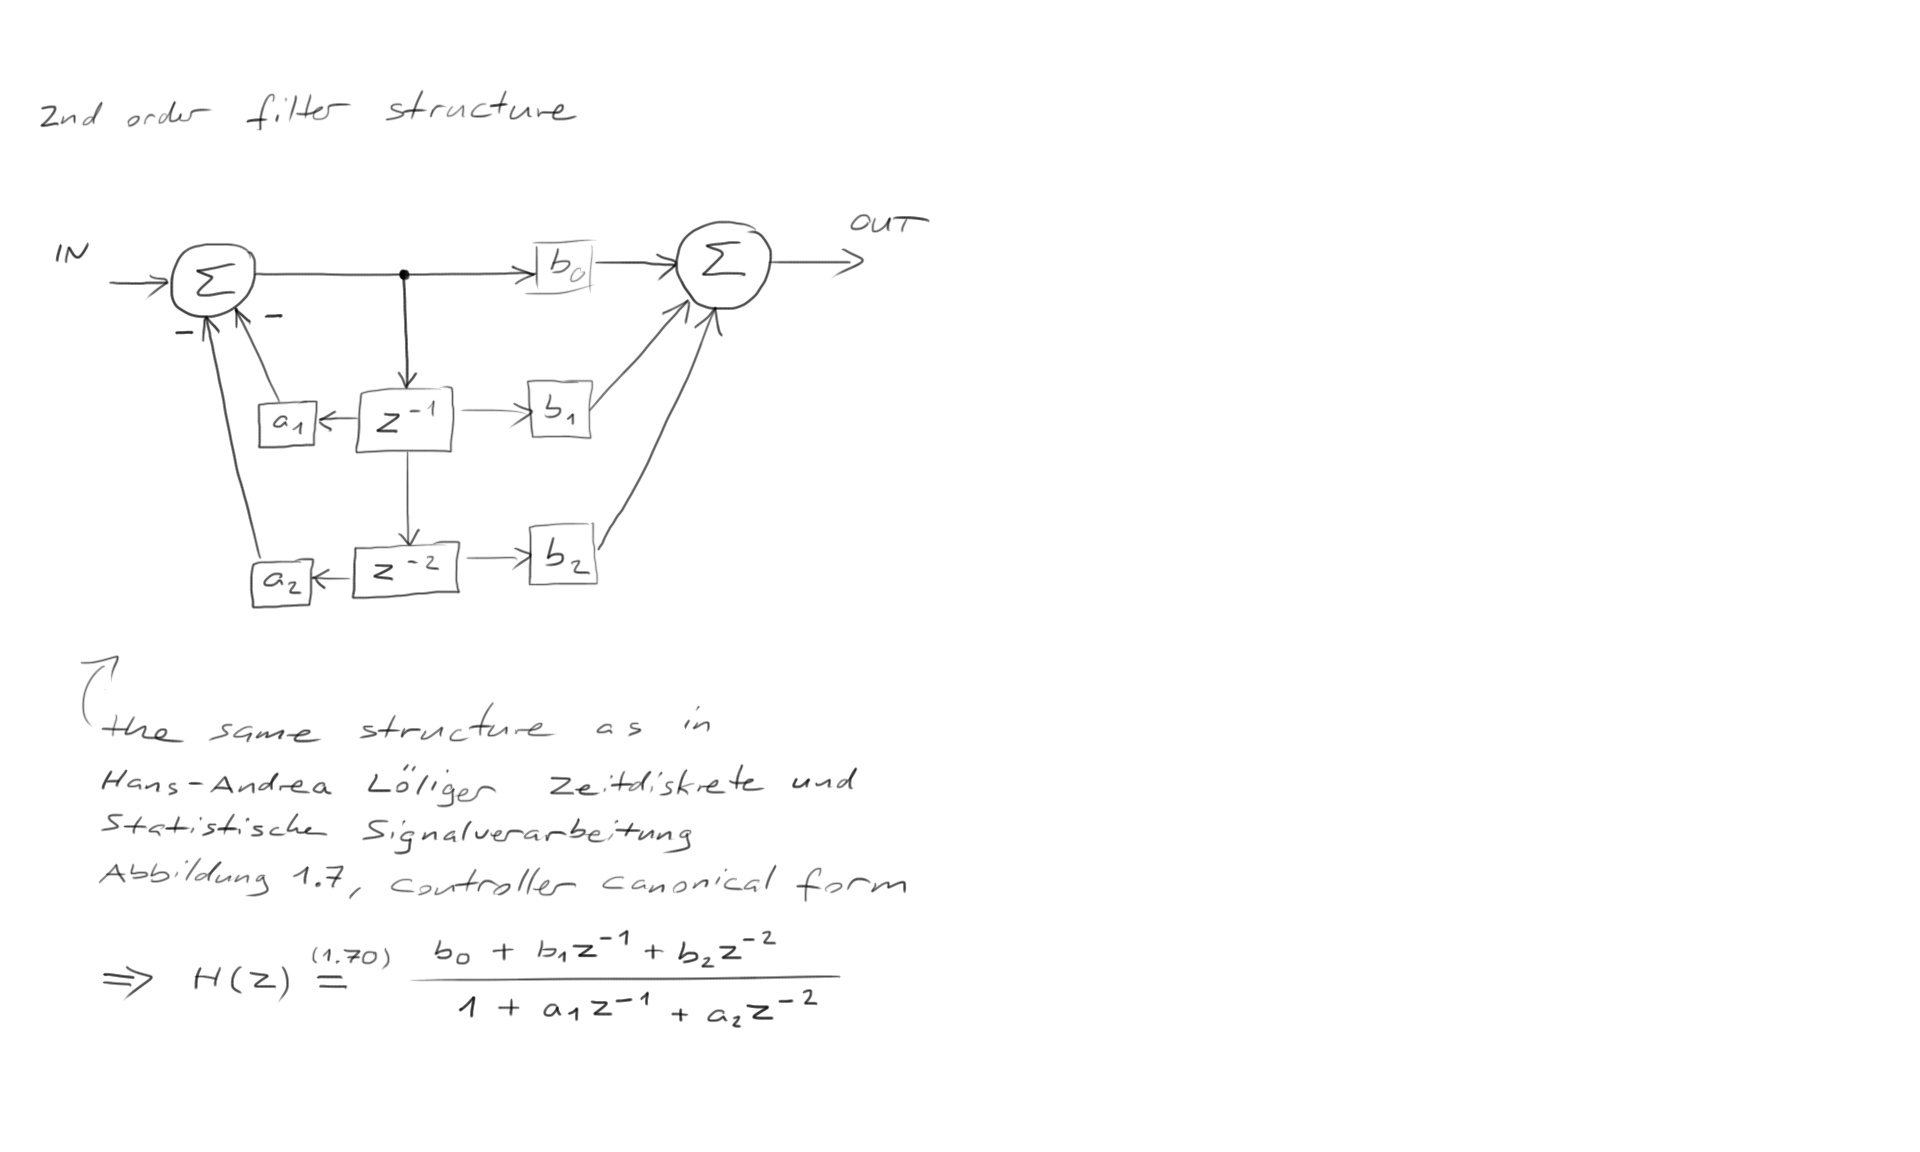 2nd order filter structure
IN
OUT
Σ
b₀
Σ
-
-
a₁
z⁻¹
b₁
a₂
z⁻²
b₂
the same structure as in
Hans-Andrea Löliger Zeitdiskrete und
Statistische Signalverarbeitung
Abbildung 1.7, controller canonical form
(1.70)
b₀ + b₁z⁻¹ + b₂z⁻²
⇒ H(z) =
1 + a₁z⁻¹ + a₂z⁻²